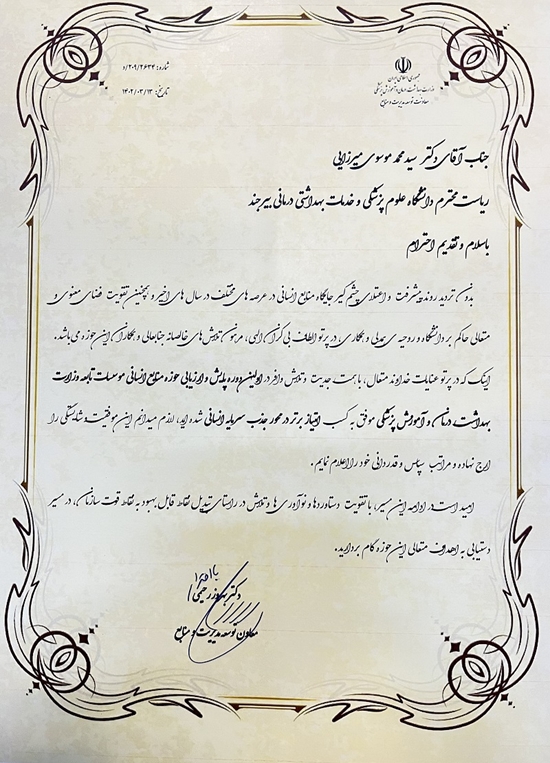 جمهوری اسلامی ایران
وزارت بهداشت، درمان و آموزش پزشکی
معاونت توسعه مدیریت و منابع
شماره: ۲۰۹/۲۶۳۴/د
تاریخ: ۱۴۰۲/۰۳/۱۳
جناب آقای دکتر سید محمد موسوی میرزایی
ریاست محترم دانشگاه علوم پزشکی و خدمات بهداشتی درمانی بیرجند
با سلام و تقدیم احترام
بدون تردید روند پیشرفت و اعتلای چشم گیر جایگاه منابع انسانی در عرصه های مختلف در سال های اخیر و همچنین تقویت فضای معنوی و
متعالی حاکم بر دانشگاه و روحیه ی همدلی و همکاری در پرتو الطاف بی کران الهی، مرهون تلاش های خالصانه جنابعالی و همکاران این حوزه می باشد.
اینک که در پرتو عنایات خداوند متعال، با همت جدیت و تلاش وافر در اولین دوره پایش و ارزیابی حوزه منابع انسانی موسسات تابعه وزارت
بهداشت درمان و آموزش پزشکی موفق به کسب امتیاز برتر در محور جذب سرمایه انسانی شده اید، لازم میدانم این موفقیت و شایستگی را
ارج نهاده و مراتب سپاس و قدردانی خود را اعلام نمایم.
امید است در ادامه این مسیر، با تقویت دستاوردها و نوآوری ها و تلاش در راستای تبدیل نقاط قابل بهبود به نقاط قوت سازمان، در مسیر
دستیابی به اهداف متعالی این حوزه گام بردارید.
با احترام
دکتر بهروز رحیمی
معاون توسعه مدیریت و منابع